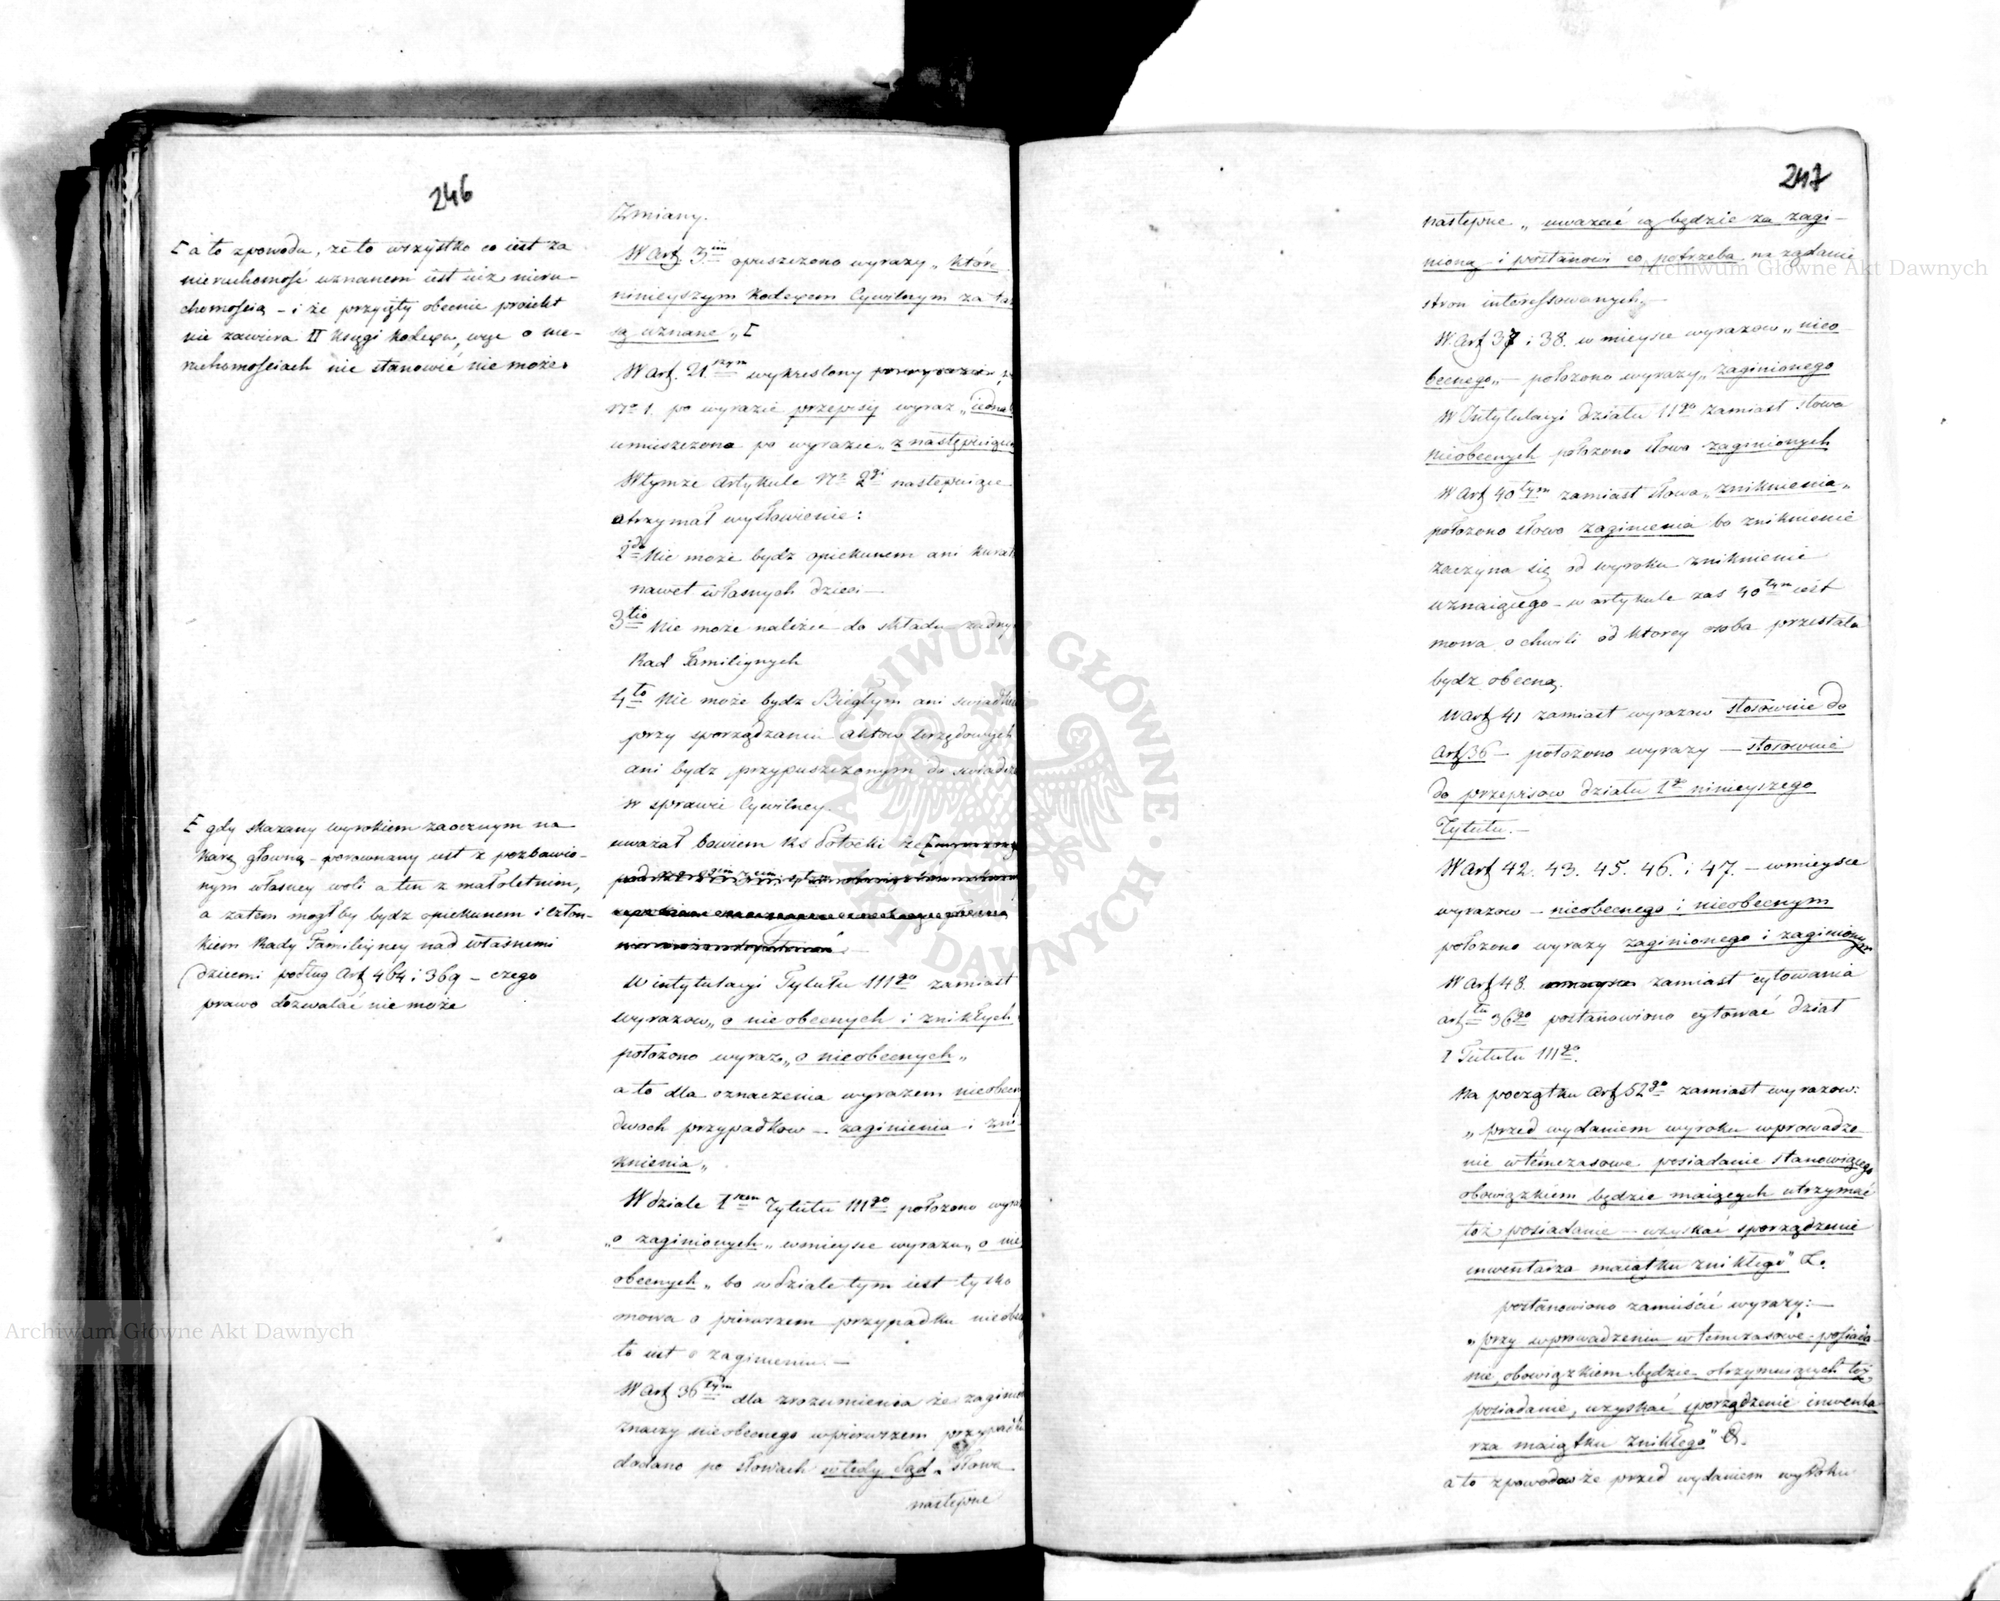 246
[ a to zpowodu, że to wszystko co iest za
nieruchomość uznanem iest iuż nieru-
chomością - i że przyięty obecnie proiekt
nie zawiera II Księgi Kodexu, więc o nie-
ruchomościach nic stanowić nie może.
[ gdy skazany wyrokiem zaocznym na
karę główną - porownany iest z pozbawio-
nym własney woli a ten z małoletnim,
a zatem mogł by bydz opiekunem i człon-
kiem Rady Familiyney nad własnemi
dziećmi podług Art 464 i 369 - czego
prawo dozwalać nie może
Zmiany.
W Art. 3im opuszczono wyrazy „ które
ninieyszym Kodexem Cywilnym za ta
są uznane „ [
W Art. 21szym wykreslony
Nro 1. po wyrazie przepisy wyraz „ iedna
umieszczona po wyrazie „
W tymże Artykule Nr 2gi następuiące
otrzymał wysłowienie:
2do Nie może bydz opiekunem ani kurat
nawet własnych dzieci —
3tio Nie może należeć do składu żadny
Rad Familiynych
4to Nie może bydz Biegłym ani swiadki
przy sporządzaniu aktow Urzędowych
ani bydz przypuszczonym do swiadcz
w sprawie Cywilney.
uważał bowiem Ks Potocki że [
W intytulacyi Tytułu IIIgo zamiast
wyrazow „ o nieobecnych i znikłych
położono wyraz „ o nieobecnych „
a to dla oznaczenia wyrazem nieobecn
dwoch przypadkow — zaginienia i zni-
knienia „
W dziale Iszem Tytułu IIIgo położono wyraz
„ o zaginionych „ wmieysce wyrazu „ o nie
obecnych „ bo w dziale tym iest tylko
mowa o pierwszem przypadku nieobec
to iest o zaginieniu. —
W Art 36tym dla zrozumienia że zaginio
znaczy nieobecnego wpierwszem przypadku
dodano po słowach wtedy Sąd „ słowa
następne
247
następne „ uważać ią będzie za zagi-
nioną i postanowi co potrzeba na żądanie
stron interessowanych „
W Art 37 i 38. w mieysce wyrazow „ nieo
becnego „ — położono wyrazy „ zaginionego
W Intytulacyi działu IIgo zamiast słowa
nieobecnych położono słowo zaginionych
W Art 40tym zamiast słowa „ zniknienia „
położono słowo zaginienia bo zniknienie
zaczyna się od wyroku zniknienie
uznaiącego - w artykule zas 40tym iest
mowa o chwili od ktorey osoba przestała
bydz obecną.
W Art 41 zamiast wyrazow stosownie do
Art 36 — położono wyrazy — stosownie
do przepisow działu Igo ninieyszego
Tytułu. —
W Art 42. 43. 45. 46. i 47. — wmieysce
wyrazow — nieobecnego i nieobecnym
położono wyrazy zaginionego i zaginionym
W Art 48. zamiast cytowania
artłu 36go postanowiono cytować dział
I Tutułu IIIgo.
Na początku Art 52go zamiast wyrazow:
„ przed wydaniem wyroku wprowadze-
nie wtemczasowe posiadanie stanowiącego
obowiązkiem będzie maiących utrzymać
toż posiadanie — uzyskać sporządzenie
inwentarza maiątku znikłego" &.
postanowiono zamieścić wyrazy: —
„ przy wprowadzeniu w temczasowe posiada-
nie, obowiązkiem będzie otrzymuiących toż
posiadanie, uzyskać sporządzenie inwenta
rza maiątku znikłego" &.
a to zpowodow że przed wydaniem wyroku
Archiwum Główne Akt Dawnych
Archiwum Główne Akt Dawnych
ARCHIWUM GŁÓWNE AKT DAWNYCH